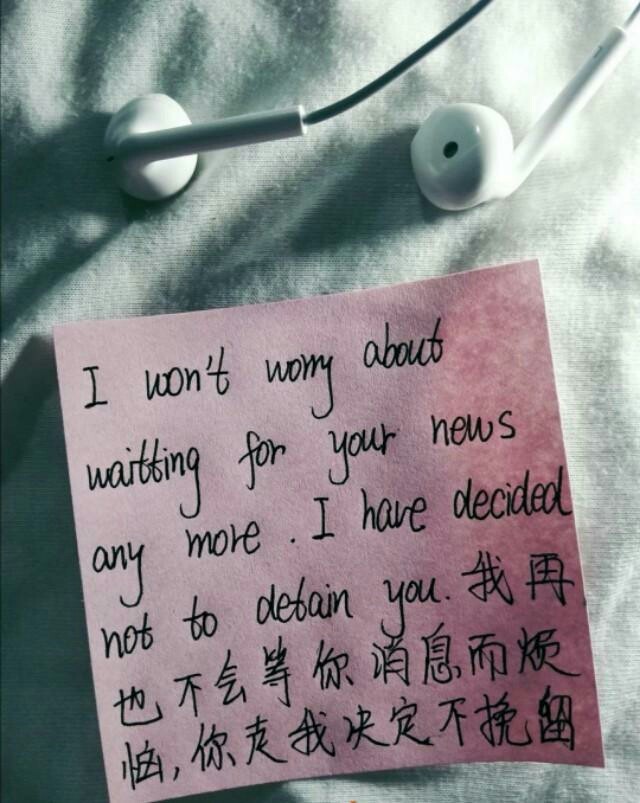 I won't worry about
waitting for your news
any more. I have decided
not to detain you. 我再
也不会等你消息而烦
恼,你走我决定不挽留